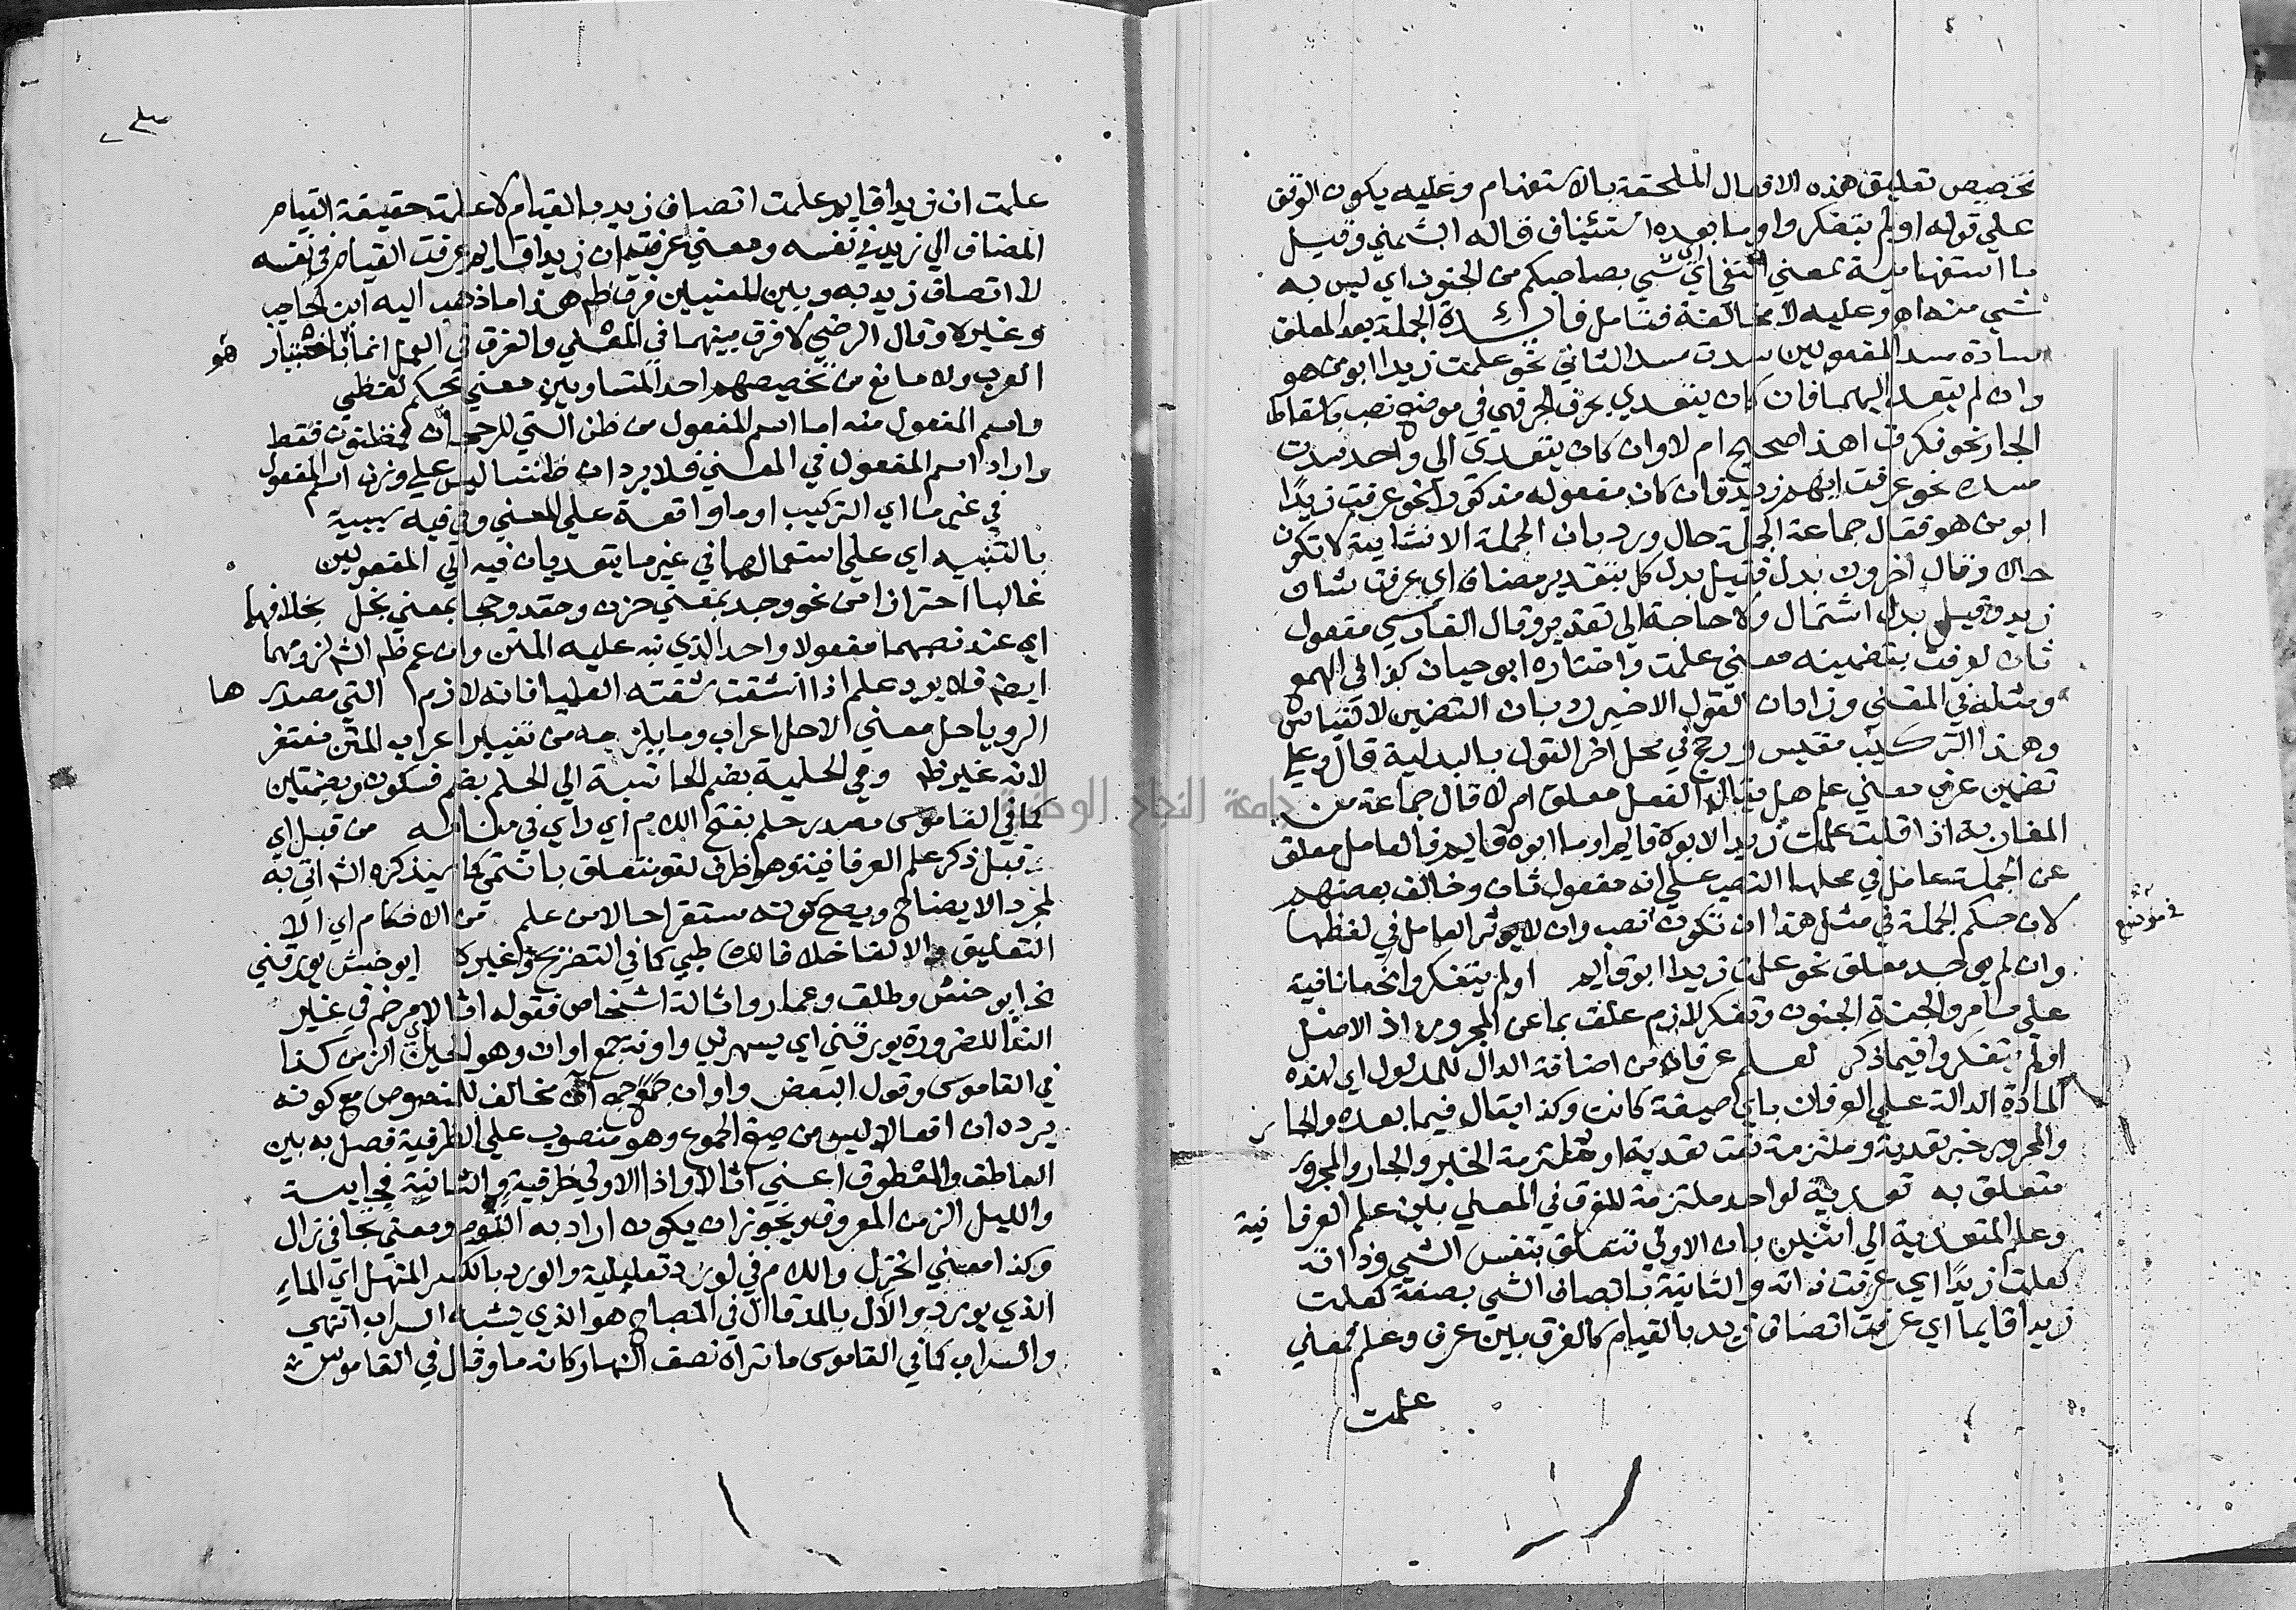 تخصيص تعليق هذه الافعال الملحقة بالاستفهام وعليه يكون الوقف
علي قوله اولم يتفكروا وما بعده استئناف قاله الشمني وقيل
ما استفهامية بمعني النفي اي اي شي بصاحبكم من الجنون اي ليس به
شي منه اه وعليه لا مخالفة فتامل فايدة الجملة بعد المعلق
سادة مسد المفعولين سدت مسد الثاني نحو علمت زيدا ابو من هو
وان لم يتعد اليهما فان كان يتعدي بحرف الجر فهي في موضع نصب باسقاط
الجار نحو فكرت اهذا صحيح ام لا وان كان يتعدي الي واحد سدت
مسده نحو عرفت ايهم زيد فان كان مفعوله مذكورا نحو عرفت زيدا
ابو من هو فقال جماعة الجملة حال ورد بان الجملة الانشايية لا تكون
حالا وقال اخرون بدل فقيل بدل كل بتقدير مضاف اي عرفت شان
زيد وقيل بدل اشتمال ولا حاجة الي تقدير وقال الفارسي مفعول
ثان لعرفت بتضمينه معني علمت واختاره ابو حيان كذا في الهمع
ومثله في المغني وزاد ان القول الاخير رد بان التضمين لا ينقاس
وهذا التركيب مقيس ورجح في محل اخر القول بالبدلية قال وعلي
تضمين عرف معني علم هل يقال الفعل معلق ام لا قال جماعة من
المغاربة اذا قلت علمت زيدا لابوه قايم او ما ابوه قايم فالعامل معلق
عن الجملة عامل في محلها النصب علي انه مفعول ثان وخالف بعضهم
لان حكم الجملة في مثل هذا ان تكون نصب وان لا يوثر العامل في لفظها
في موضع
وان لم يوجد معلق نحو علمت زيدا ابوه قايم اولم يتفكروا الخ ما نافية
علي ما مر والجنة الجنون وتفكر لازم علق بما عن المجرور اذ الاصل
اولم يتفكروا فيما ذكر لعلم عرفان من اضافة الدال للمدلول اي لهذه
المادة الدالة علي العرفان باي صيغة كانت وكذا يقال فيما بعده والجار
والمجرور خبر تعدية وملتزمة نعت تعدية او ملتزمة الخبر والجار والمجرور
متعلق به تعدية لواحد ملتزمة للفرق في المعني بين علم العرفانية
وعلم المتعدية الي اثنين بان الاولي تتعلق بنفس الشي وذاته
كعلمت زيدا اي عرفت ذاته والثانية باتصاف الشي بصفة كعلمت
زيدا قايما اي عرفت اتصاف زيد بالقيام كالفرق بين عرف وعلم فمعني
علمت
علمت ان زيدا قايم علمت اتصاف زيد بالقيام لا علمت حقيقة القيام
المضاف الي زيد في نفسه ومعني عرفت ان زيدا قايم عرفت القيام في نفسه
لا اتصاف زيد به وبين المعنيين فرق ظم هذا ما ذهب اليه ابن الحاجب
وغيره وقال الرضي لا فرق بينهما في المعني والفرق في العمل انما باختيار هو
العرب ولا مانع من تخصيصهم احد المتساويين معني بحكم لفظي
واسم المفعول منه اما اسم المفعول من ظن التي للرجحان فمظنون فقط
واراد اسم المفعول في المعني فلا يرد ان ظننا ليس علي وزن اسم المفعول
في غير ما اي التركيب او ما واقعة علي المعني وفي فيه سببية
بالتنبيه اي علي استعمالهما في غير ما يتعديان فيه الي المفعولين
غالبا احترازا من نحو وجد بمعني حزن وحقد وحجا بمعني بخل بخلافهما
اي عند نصبهما مفعولا واحدا الذي نبه عليه المتن وان عم ظم الش لزومهما
ايضم فلا يرد علم اذا انشقت شفته العليا فانه لازم التي مصدرها
الرويا حل معني لا حل اعراب وما يلزمه من تغيير اعراب المتن مغتفر
لانه غير ظم وفي الحلمية بضم الحا نسبة الي الحلم بضم فسكون وبضمتين
كما في القاموس مصدر حلم بفتح اللام اي راي في منامه من قبل اي
قبل ذكر علم العرفانية وهو ظرف لغو متعلق بانتمي كما سيذكره الش اتي به
لمجرد الايضاح ويصح كونه مستقرا حالا من علم من الاحكام اي الا
التعليق والالغا خلافا للشاطبي كما في التصريح وغيره ابو حنش يورقني
الخ ابو حنش وطلق وعمار واثالة اشخاص فقوله اثالا مرخم في غير
الندا للضرورة يورقني اي يسهرني واونة جمع اوان وهو الحين اي الزمن كذا
في القاموس وقول البعض واوان جمع ان مخالف للنصوص مع كونه
يرده ان افعالا ليس من صيغ الجموع وهو منصوب علي الظرفية فصل به بين
العاطف والمعطوف اعني اثالا واذا الاولي ظرفية والثانية فجايية
والليل الزمن المعروف ويجوز ان يكون اراد به النوم ومعني تجافي زال
وكذا معني انخزل واللام في لورد تعليلية والورد بالكسر المنهل اي الماء
الذي يورد والال بالمد قال في المصباح هو الذي يشبه السراب انتهي
والسراب كما في القاموس ما تراه نصف النهار كانه ما وقال في القاموس
جامعة النجاح الوطنية